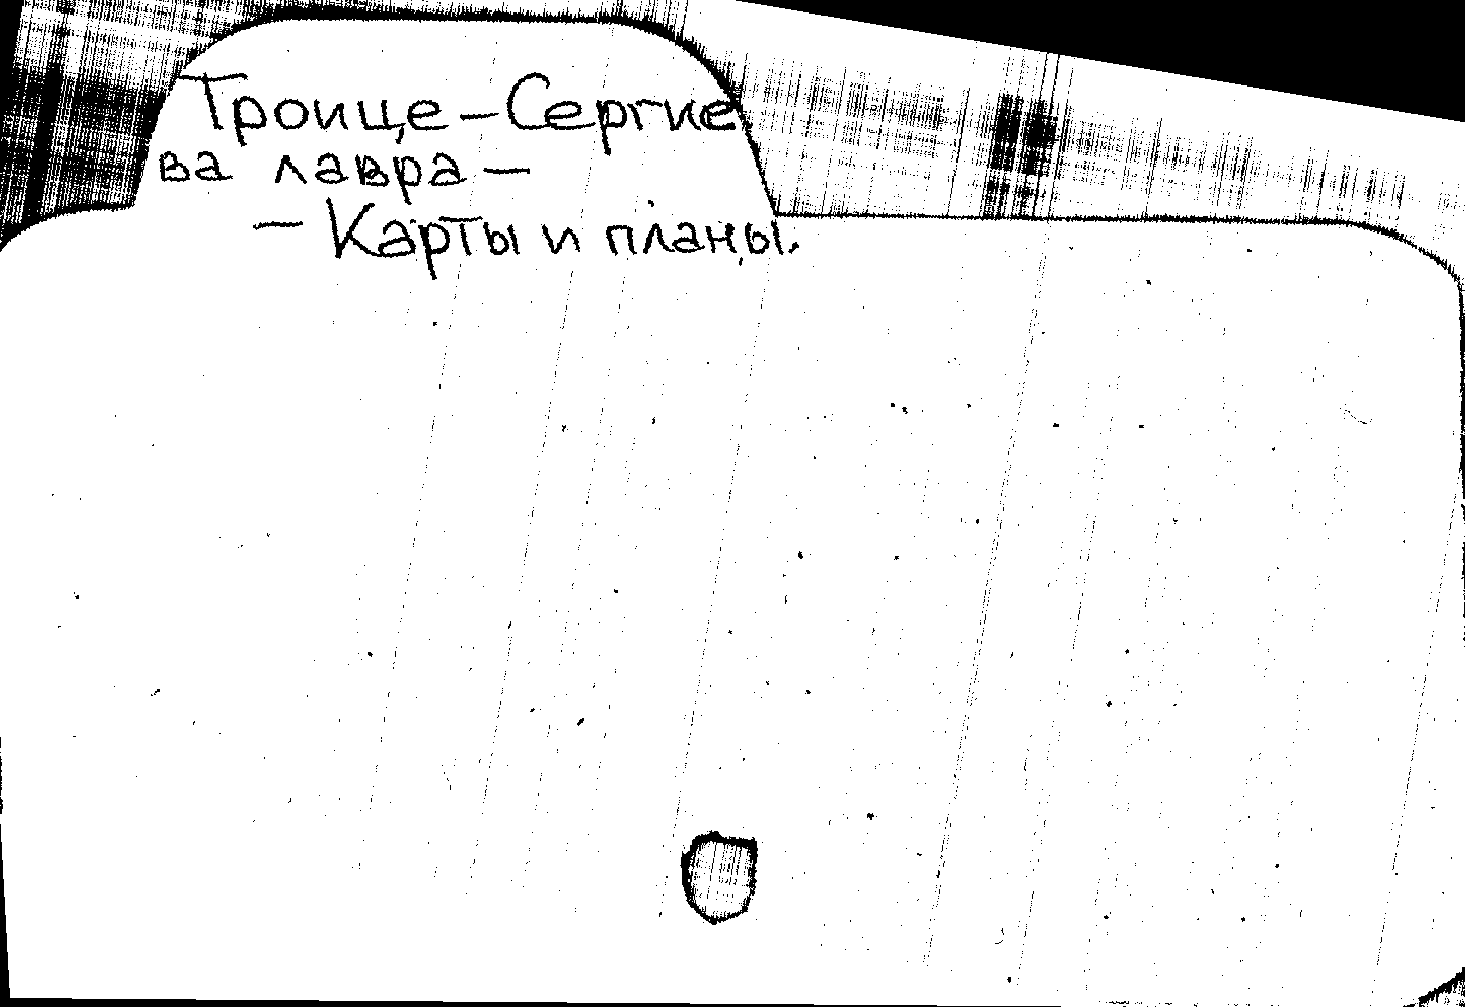 Троице-Сергие
ва лавра -
- Карты и планы.